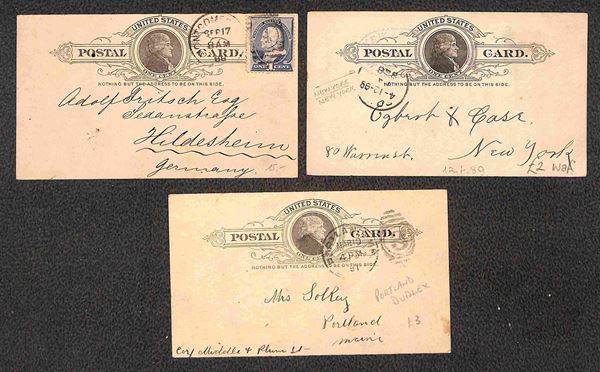 UNITED STATES
POSTAL CARD.
ONE CENT
NOTHING BUT THE ADDRESS TO BE ON THIS SIDE.
SEP 17
8 AM
ONE CENT
Adolf Fritsch Esq
Sedanstraße
Hildesheim
Germany
15.-
UNITED STATES
POSTAL CARD.
ONE CENT
NOTHING BUT THE ADDRESS TO BE ON THIS SIDE.
NEW YORK
NEW YORK
Egbert & Case
80 Warren St.
New York
12.1.89
£2
UNITED STATES
POSTAL CARD.
ONE CENT
NOTHING BUT THE ADDRESS TO BE ON THIS SIDE.
PORTLAND
MAR 10
4 PM
91
PORTLAND
DUPLEX
£3
Mrs
Portland
Maine
Cor Middle & Plum St-